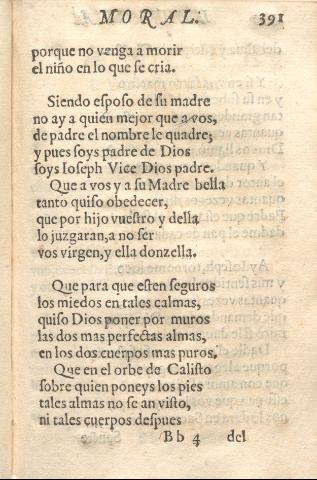 MORAL. 391
porque no venga a morir
el niño en lo que se cria.
Siendo esposo de su madre
no ay a quien mejor que a vos,
de padre el nombre le quadre,
y pues soys padre de Dios
soys Ioseph Vice Dios padre.
Que a vos y a su Madre bella
tanto quiso obedecer,
que por hijo vuestro y della
lo juzgaran, a no ser
vos virgen, y ella donzella.
Que para que esten seguros
los miedos en tales calmas,
quiso Dios poner por muros
las dos mas perfectas almas,
en los dos cuerpos mas puros.
Que en el orbe de Calisto
sobre quien poneys los pies
tales almas no se an visto,
ni tales cuerpos despues
Bb 4 del